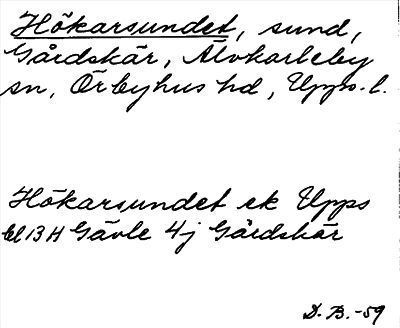 Hökarsundet, sund,
Gårdskär, Älvkarleby
sn, Örbyhus hd, Upps. l.
Hökarsundet ek Upps
bl 13 H Gävle 4j Gårdskär
D. B. -59